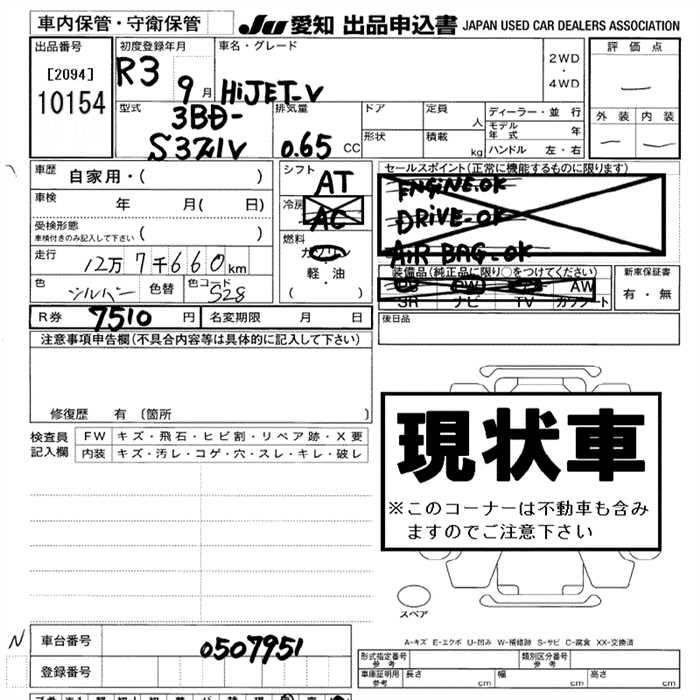 車内保管・守衛保管 JU 愛知 出品申込書 JAPAN USED CAR DEALERS ASSOCIATION
出品番号 初度登録年月 車名・グレード 2WD・4WD 評価点
[2094] R3 9月 HiJET-V
10154 型式 排気量 ドア 定員 人 ディーラー・並行 外装 内装
3BD- モデル年式 年
S321V 0.65 CC 形状 積載 kg ハンドル 左・右
車歴 自家用・( ) シフト AT セールスポイント(正常に機能するものに限ります)
車検 年 月( 日) 冷房 AC ENGiNE.OK
DRiVE-OK
受検形態 車検付きのみ記入して下さい ( ) 燃料 ガソリン AiR BAG-OK
走行 12万7千660km 軽・油 装備品(純正品に限り○をつけてください) 新車保証書
色 シルバー 色替 色コード S28 ( ) AW 有・無
SR ナビ TV カワシート
R券 7510円 名変期限 月 日 後日品
注意事項申告欄(不具合内容等は具体的に記入して下さい)
修復歴 有 (箇所 )
現状車
※このコーナーは不動車も含み
ますのでご注意下さい
検査員記入欄 FW キズ・飛石・ヒビ割・リペア跡・X要
内装 キズ・汚レ・コゲ・穴・スレ・キレ・破レ
スペア
A-キズ E-エクボ U-凹み W-補修跡 S-サビ C-腐食 XX-交換済
N 車台番号 0507951 形式指定番号 参考 類別区分番号 参考
登録番号 車庫証明用 参考 長さ cm 幅 cm 高さ cm